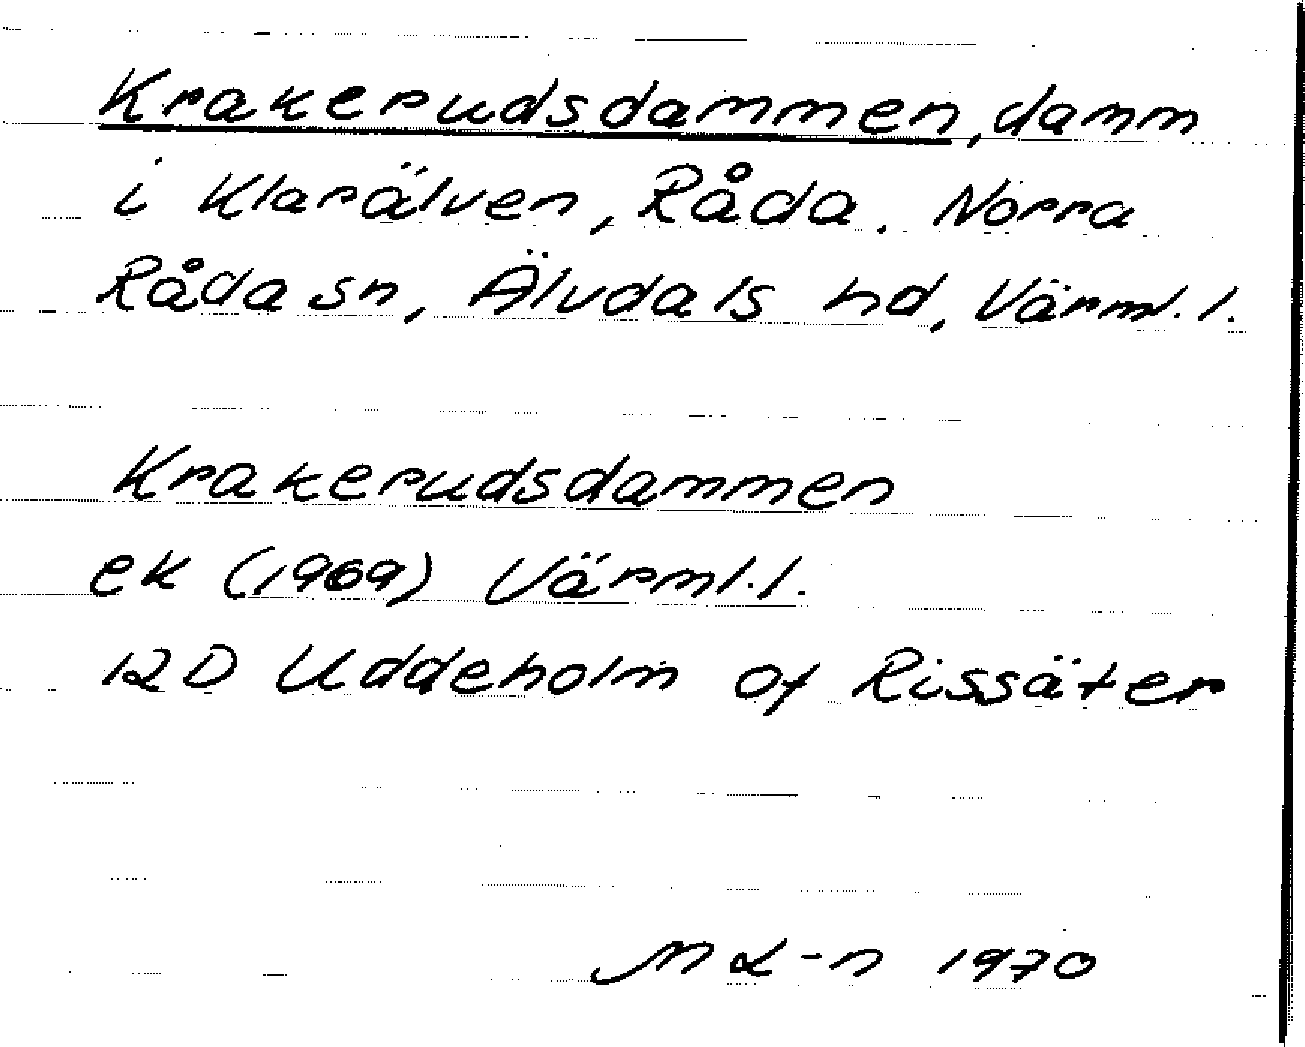 Krakerudsdammen, damm
i Klarälven, Råda. Norra
Råda sn, Älvdals hd, Värml. l.
Krakerudsdammen
ek (1969) Värml. l.
12D Uddeholm of Rissäter
1970